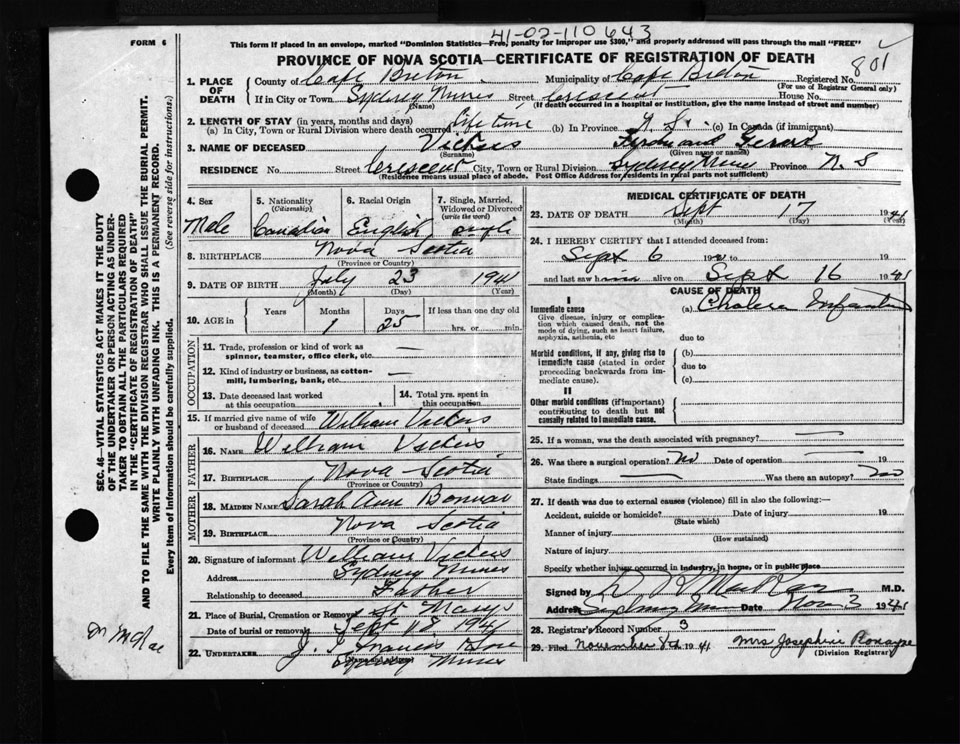 41-02-110643
FORM 6
This form if placed in an envelope, marked "Dominion Statistics—Free, penalty for improper use $300," and properly addressed will pass through the mail "FREE"
PROVINCE OF NOVA SCOTIA—CERTIFICATE OF REGISTRATION OF DEATH
801
1. PLACE OF DEATH
County of Cape Breton Municipality of Cape Breton Registered No.
(For use of Registrar General only)
If in City or Town Sydney Mines Street Crescent House No.
(Name) (If death occurred in a hospital or institution, give the name instead of street and number)
2. LENGTH OF STAY (in years, months and days)
(a) In City, Town or Rural Division where death occurred Life time (b) In Province N. S. (c) In Canada (if immigrant)
3. NAME OF DECEASED Vickers Ferdinand Gerard
(Surname) (Given name or names)
RESIDENCE No. Street Crescent City, Town or Rural Division Sydney Mines Province N. S
(Residence means usual place of abode. Post Office Address for residents in rural parts not sufficient)
4. Sex Male
5. Nationality (Citizenship) Canadian
6. Racial Origin English
7. Single, Married, Widowed or Divorced (write the word) single
8. BIRTHPLACE Nova Scotia
(Province or Country)
9. DATE OF BIRTH July 23 1941
(Month) (Day) (Year)
10. AGE in Years Months Days If less than one day old
1 25 hrs. or min.
OCCUPATION
11. Trade, profession or kind of work as spinner, teamster, office clerk, etc. —
12. Kind of industry or business, as cotton-mill, lumbering, bank, etc. —
13. Date deceased last worked at this occupation
14. Total yrs. spent in this occupation
15. If married give name of wife or husband of deceased William Vickers
FATHER
16. NAME William Vickers
17. BIRTHPLACE Nova Scotia
(Province or Country)
MOTHER
18. MAIDEN NAME Sarah Ann
19. BIRTHPLACE Nova Scotia
(Province or Country)
20. Signature of informant William Vickers
Address Sydney Mines
Relationship to deceased Father
21. Place of Burial, Cremation or Removal St Marys
Date of burial or removal Sept 18 1941
22. UNDERTAKER J. Francis
Sydney Mines
MEDICAL CERTIFICATE OF DEATH
23. DATE OF DEATH Sept 17 1941
(Month) (Day) (Year)
24. I HEREBY CERTIFY that I attended deceased from:
Sept 6 1941 to 19
and last saw him alive on Sept 16 1941
CAUSE OF DEATH
I
Immediate cause (a) Cholera Infantum
Give disease, injury or complication which caused death, not the mode of dying, such as heart failure, asphyxia, asthenia, etc
due to
Morbid conditions, if any, giving rise to immediate cause (stated in order proceeding backwards from immediate cause).
(b)
due to
(c)
II
Other morbid conditions (if important) contributing to death but not causally related to immediate cause.
25. If a woman, was the death associated with pregnancy? —
26. Was there a surgical operation? No Date of operation — 19
State findings — Was there an autopsy? No
27. If death was due to external causes (violence) fill in also the following:—
Accident, suicide or homicide? Date of injury 19
(State which)
Manner of injury
(How sustained)
Nature of injury
Specify whether injury occurred in industry, in home, or in public place
Signed by M.D.
Address Sydney Mines Date Nov 3 1941
28. Registrar's Record Number 3
29. Filed November 1941 Mrs Josephine
(Division Registrar)
SEC. 46—VITAL STATISTICS ACT MAKES IT THE DUTY OF THE UNDERTAKER OR PERSON ACTING AS UNDERTAKER TO OBTAIN ALL THE PARTICULARS REQUIRED IN THE "CERTIFICATE OF REGISTRATION OF DEATH" AND TO FILE THE SAME WITH THE DIVISION REGISTRAR WHO SHALL ISSUE THE BURIAL PERMIT.
WRITE PLAINLY WITH UNFADING INK. THIS IS A PERMANENT RECORD.
Every item of information should be carefully supplied. (See reverse side for instructions).